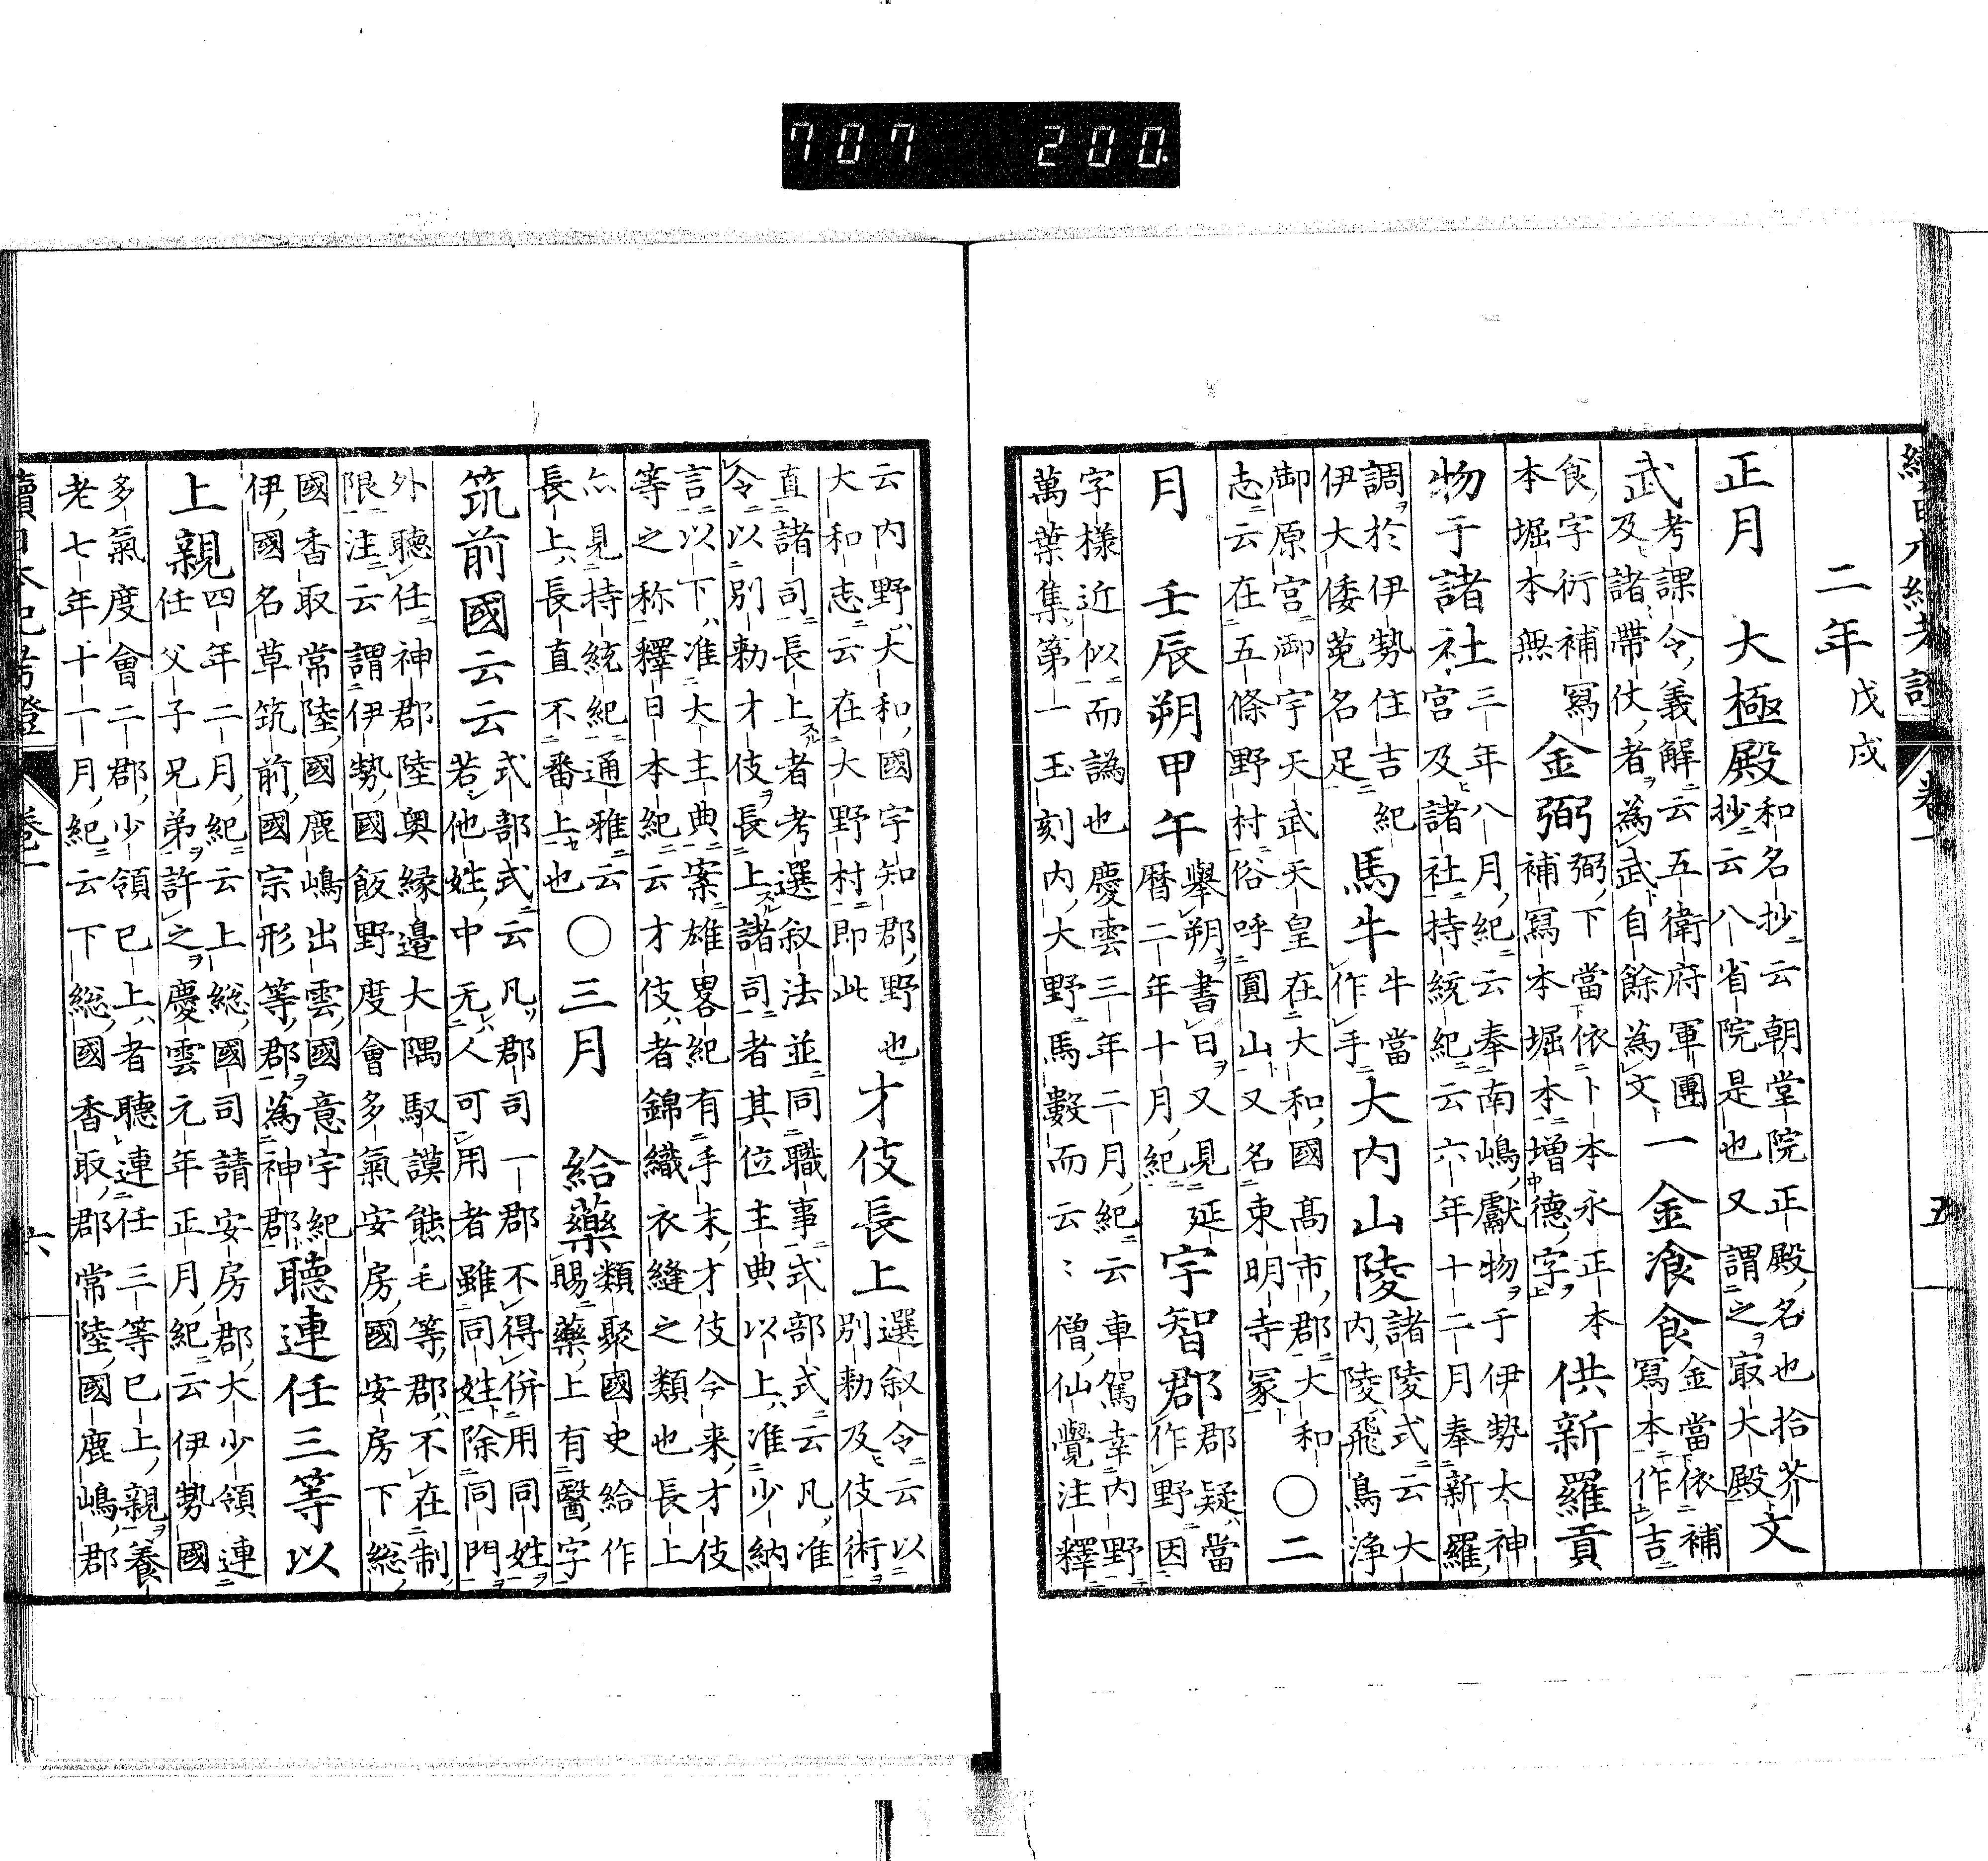 707 200.
二年戊戌
正月 大極殿和名抄云朝堂院正殿名也拾芥
抄云八省院是也又謂之㝡大殿文
武考課令義解云五衛府軍團一金飡食金當依補
及諸帶仗者為武自餘為文寫本作吉
食字衍補寫金弼弼下當依卜本永正本供新羅貢
本堀本無補寫本堀本增德字
物于諸社三年八月紀云奉南嶋獻物于伊勢大神
宮及諸社持統紀云六年十二月奉新羅
調於伊勢住吉紀馬牛牛當大内山陵諸陵式云大
伊大倭菟名足作手内陵飛鳥淨
御原宮御宇天武天皇在大和國髙市郡大和○二
志云在五條野村俗呼圓山又名東明寺冢
月 壬辰朔甲午舉朔書日又見宇智郡郡疑當
曆二年十月紀延作野因
字樣近似而譌也慶雲三年二月紀云車駕幸内野
萬葉集第一玉刻内大野馬數而云〻僧仙覺注釋
云内野大和國宇知郡野也才伎長上選叙令云以
大和志云在大野村即此別勅及伎術
直諸司長上者考選叙法並同職事式部式云凡准
令以別勅才伎長上諸司者其位主典以上准少納
言以下准大主典案雄畧紀有手末才伎今来才伎
等之称釋日本紀云才伎者錦織衣縫之類也長上
亦見持統紀通雅云○三月 給藥類聚國史給作
長上長直不番上也賜藥上有醫字
筑前國云云式部式云凡郡司一郡不得併用同姓
若他姓中无人可用者雖同姓除同門
外聽任神郡陸奥緣邊大隅馭謨熊毛等郡不在制
限注云謂伊勢國飯野度會多氣安房國安房下総
國香取常陸國鹿嶋出雲國意宇紀聽連任三等以
伊國名草筑前國宗形等郡為神郡
上親四年二月紀云上総國司請安房郡大少領連
任父子兄弟許之慶雲元年正月紀云伊勢國
多氣度會二郡少領已上者聽連任三等已上親養
老七年十一月紀云下総國香取郡常陸國鹿嶋郡
卷一
五
六